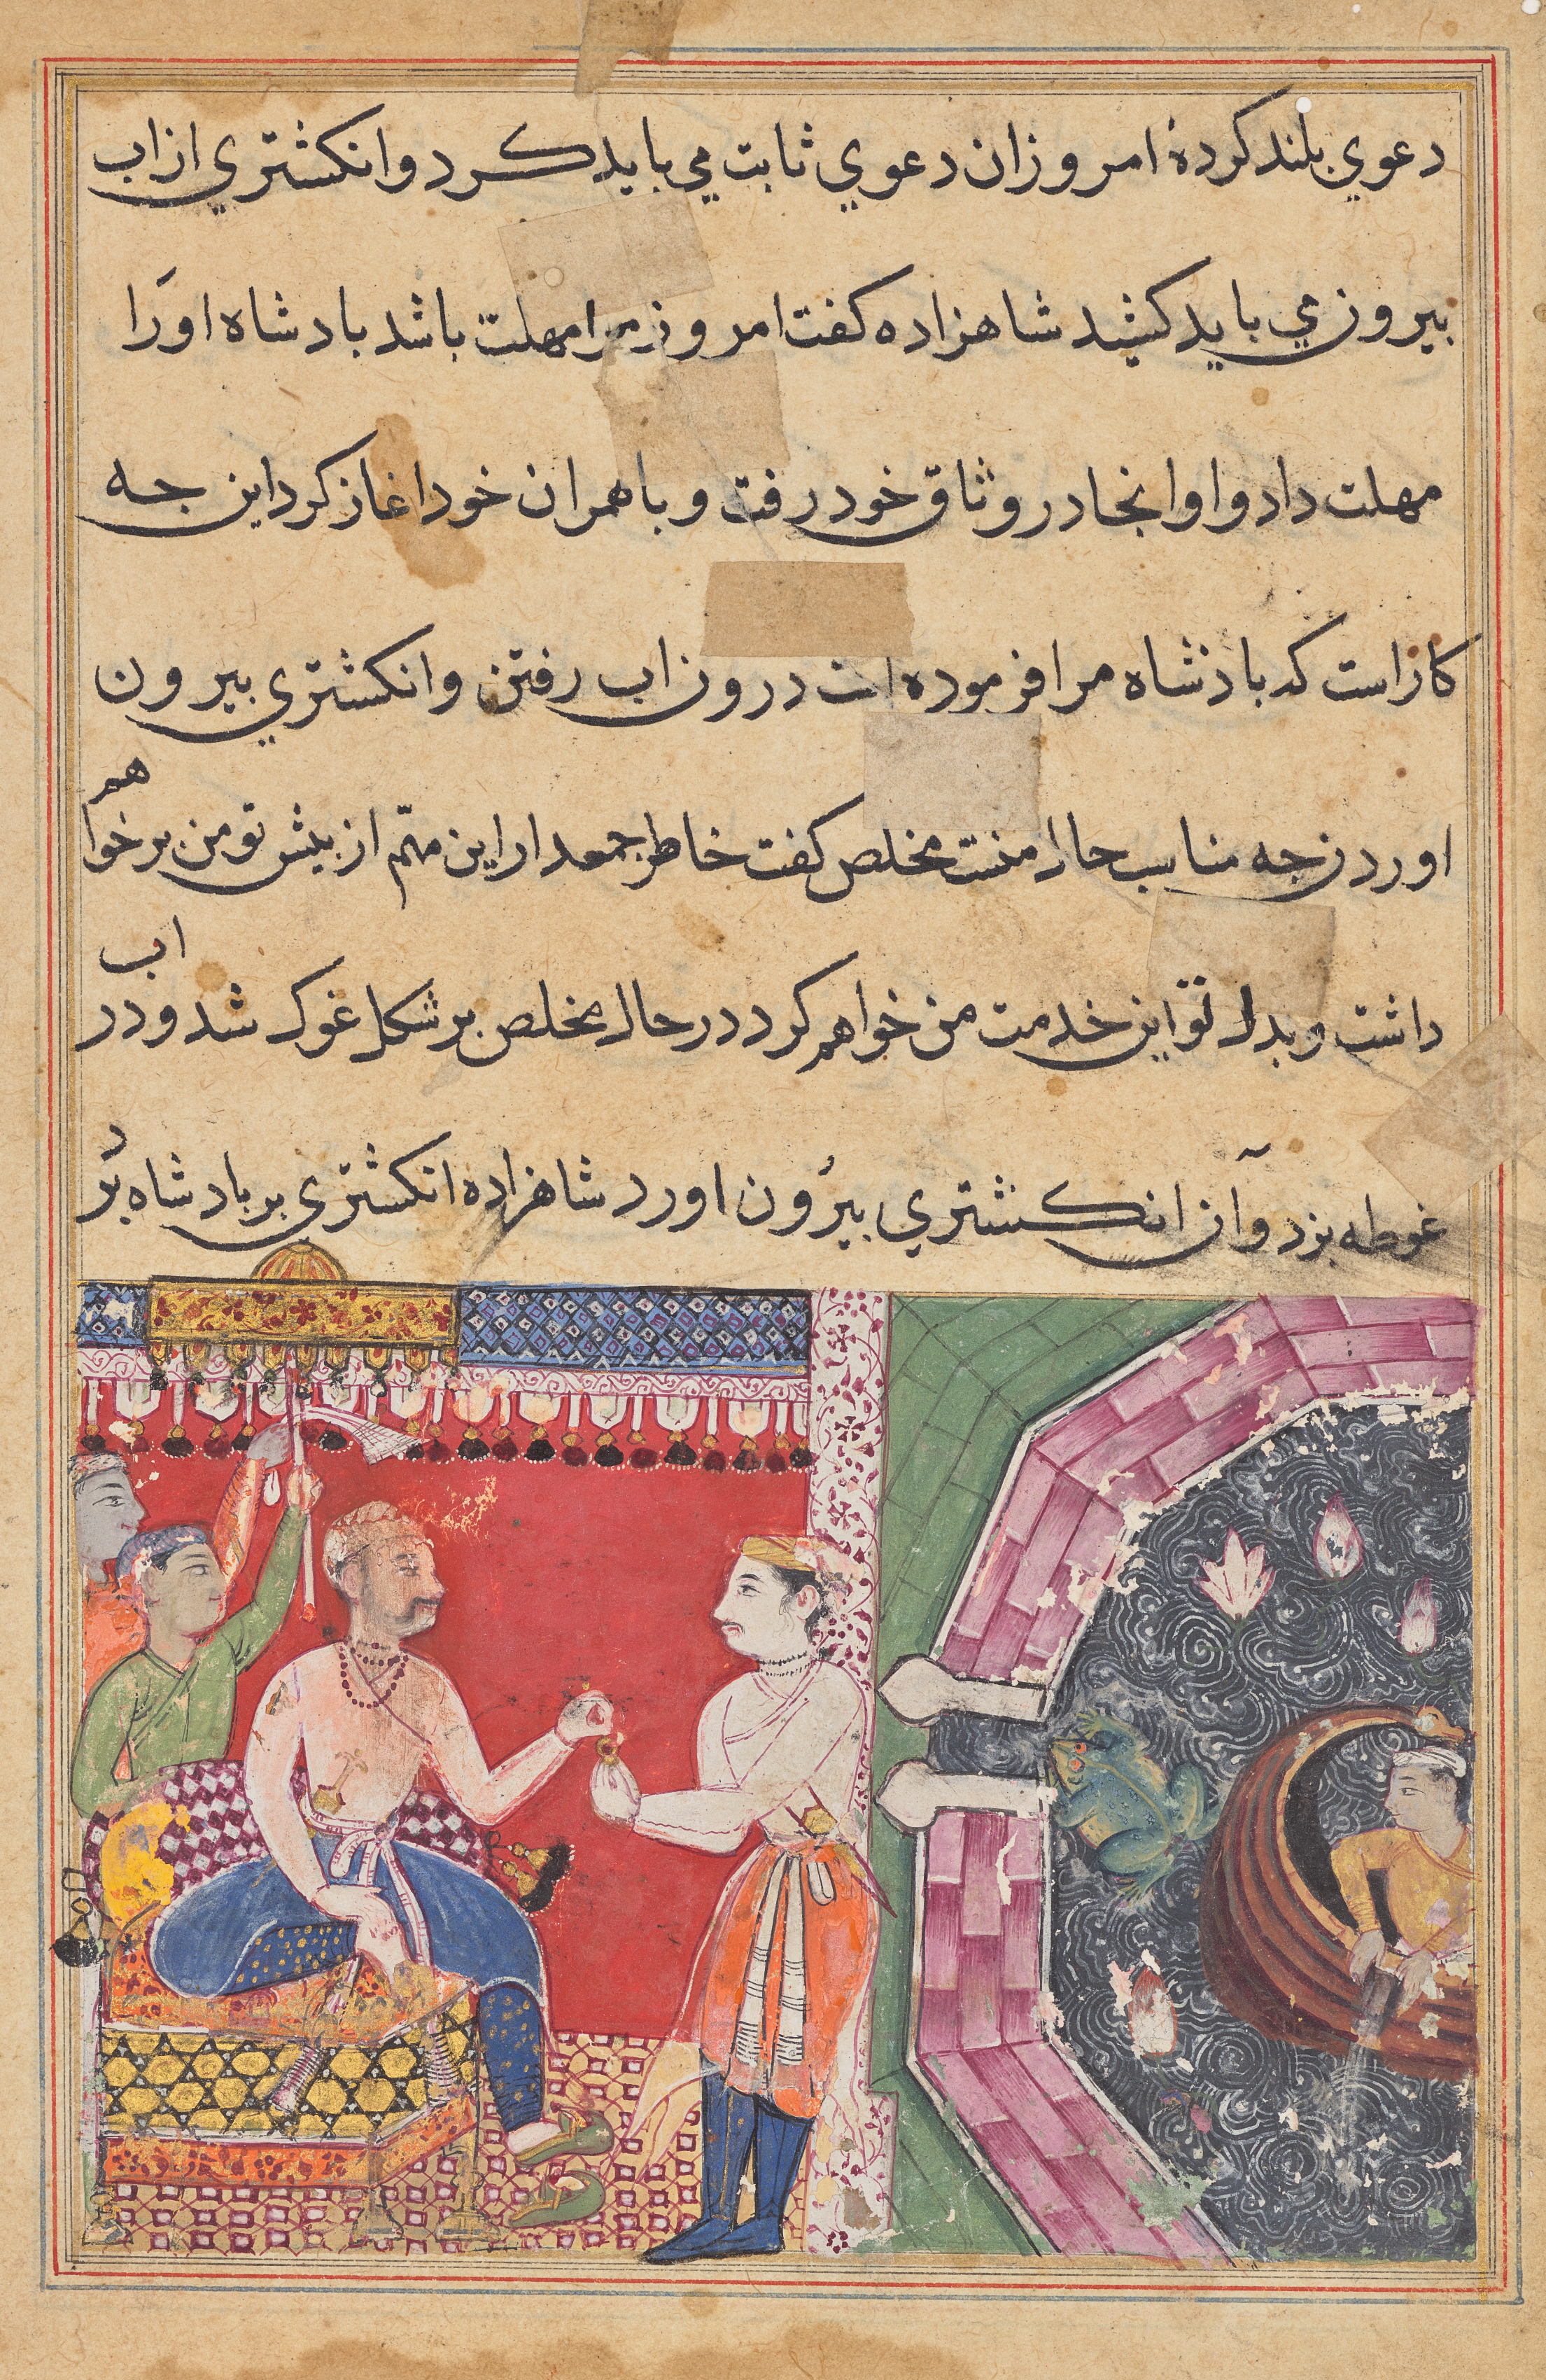 دعوي بلند كردهٔ امروز ان دعوي ثابت مي بايد كرد و انكشتري از اب
بيرون مي بايد كشيد شاهزاده كفت امروز مرا مهلت باشد بادشاه اورا
مهلت داد و او انجا در وثاق خود رفت و با همران خود اغاز كرد اين جه
كار است كه بادشاه مرا فرموده است درون اب رفتن و انكشتري بيرون
اوردن جه مناسب حال منست مخلص كفت خاطر جمع دار اين مهم از بيش تو من بر خواهم
داشت و بدل تو اين خدمت من خواهم كرد در حال مخلص بر شكل غوك شد و در اب
غوطه بزد و آن انكشتري بيرون اورد شاهزاده انكشتري بر بادشاه برد